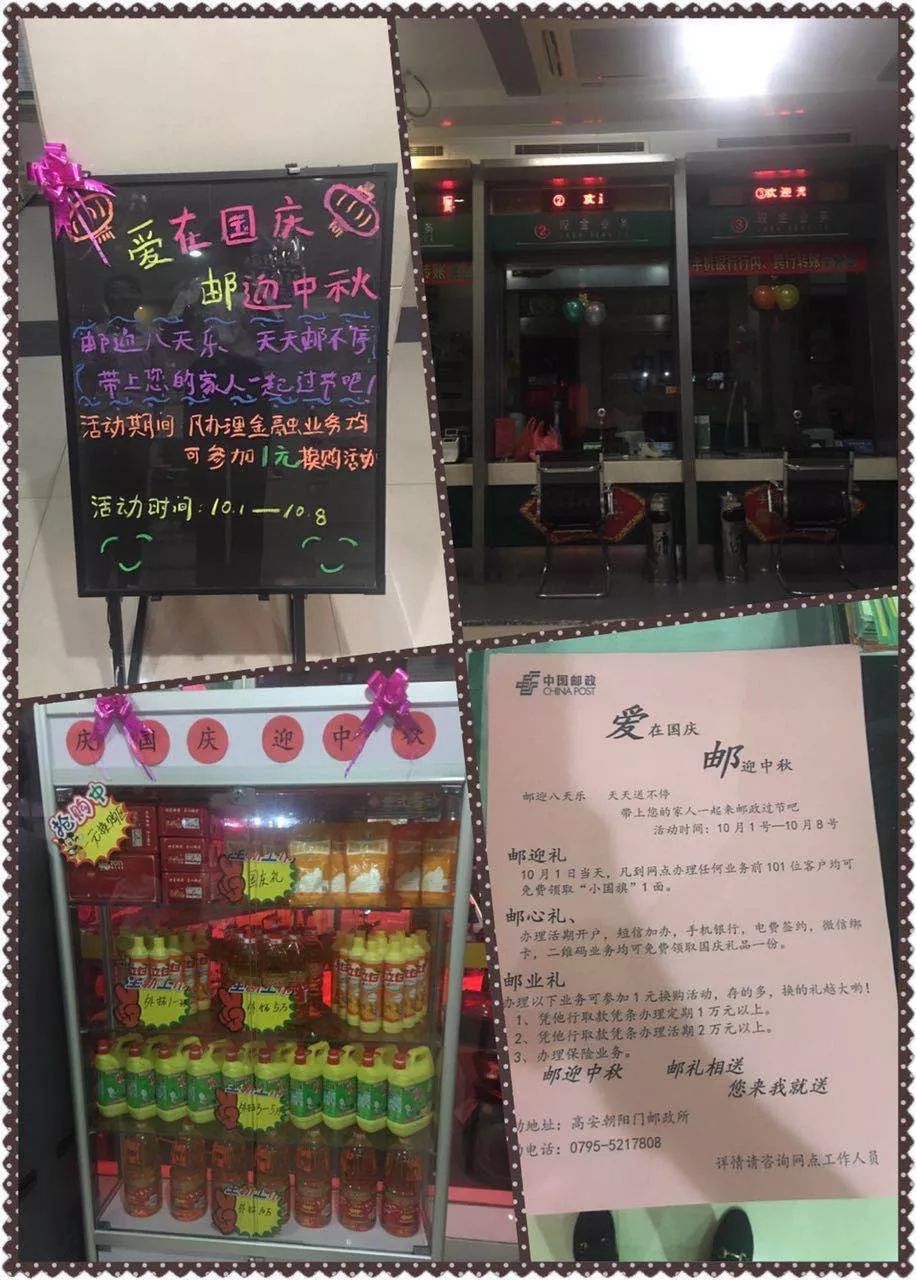 爱在国庆
邮迎中秋
邮迎八天乐 天天邮不停
带上您的家人一起过节吧！
活动期间 凡办理金融业务均
可参加1元换购活动
活动时间：10.1—10.8
② 欢迎
③欢迎光
② 现金业务
③ 现金业务
转账
手机银行行内、跨行转账
庆国庆 迎中秋
抢购中
一元换购区
国庆礼
中国邮政
CHINA POST
爱在国庆
邮迎中秋
邮迎八天乐 天天送不停
带上您的家人一起来邮政过节吧
活动时间：10月1号—10月8号
邮迎礼
10月1日当天，凡到网点办理任何业务前101位客户均可
免费领取“小国旗”1面。
邮心礼、
办理活期开户，短信加办，手机银行，电费签约，微信绑
卡，二维码业务均可免费领取国庆礼品一份。
邮业礼
办理以下业务可参加1元换购活动，存的多，换的礼越大哟！
1、凭他行取款凭条办理定期1万元以上。
2、凭他行取款凭条办理活期2万元以上。
3、办理保险业务。
邮迎中秋 邮礼相送
您来我就送
动地址：高安朝阳门邮政所
电话：0795-5217808
详情请咨询网点工作人员